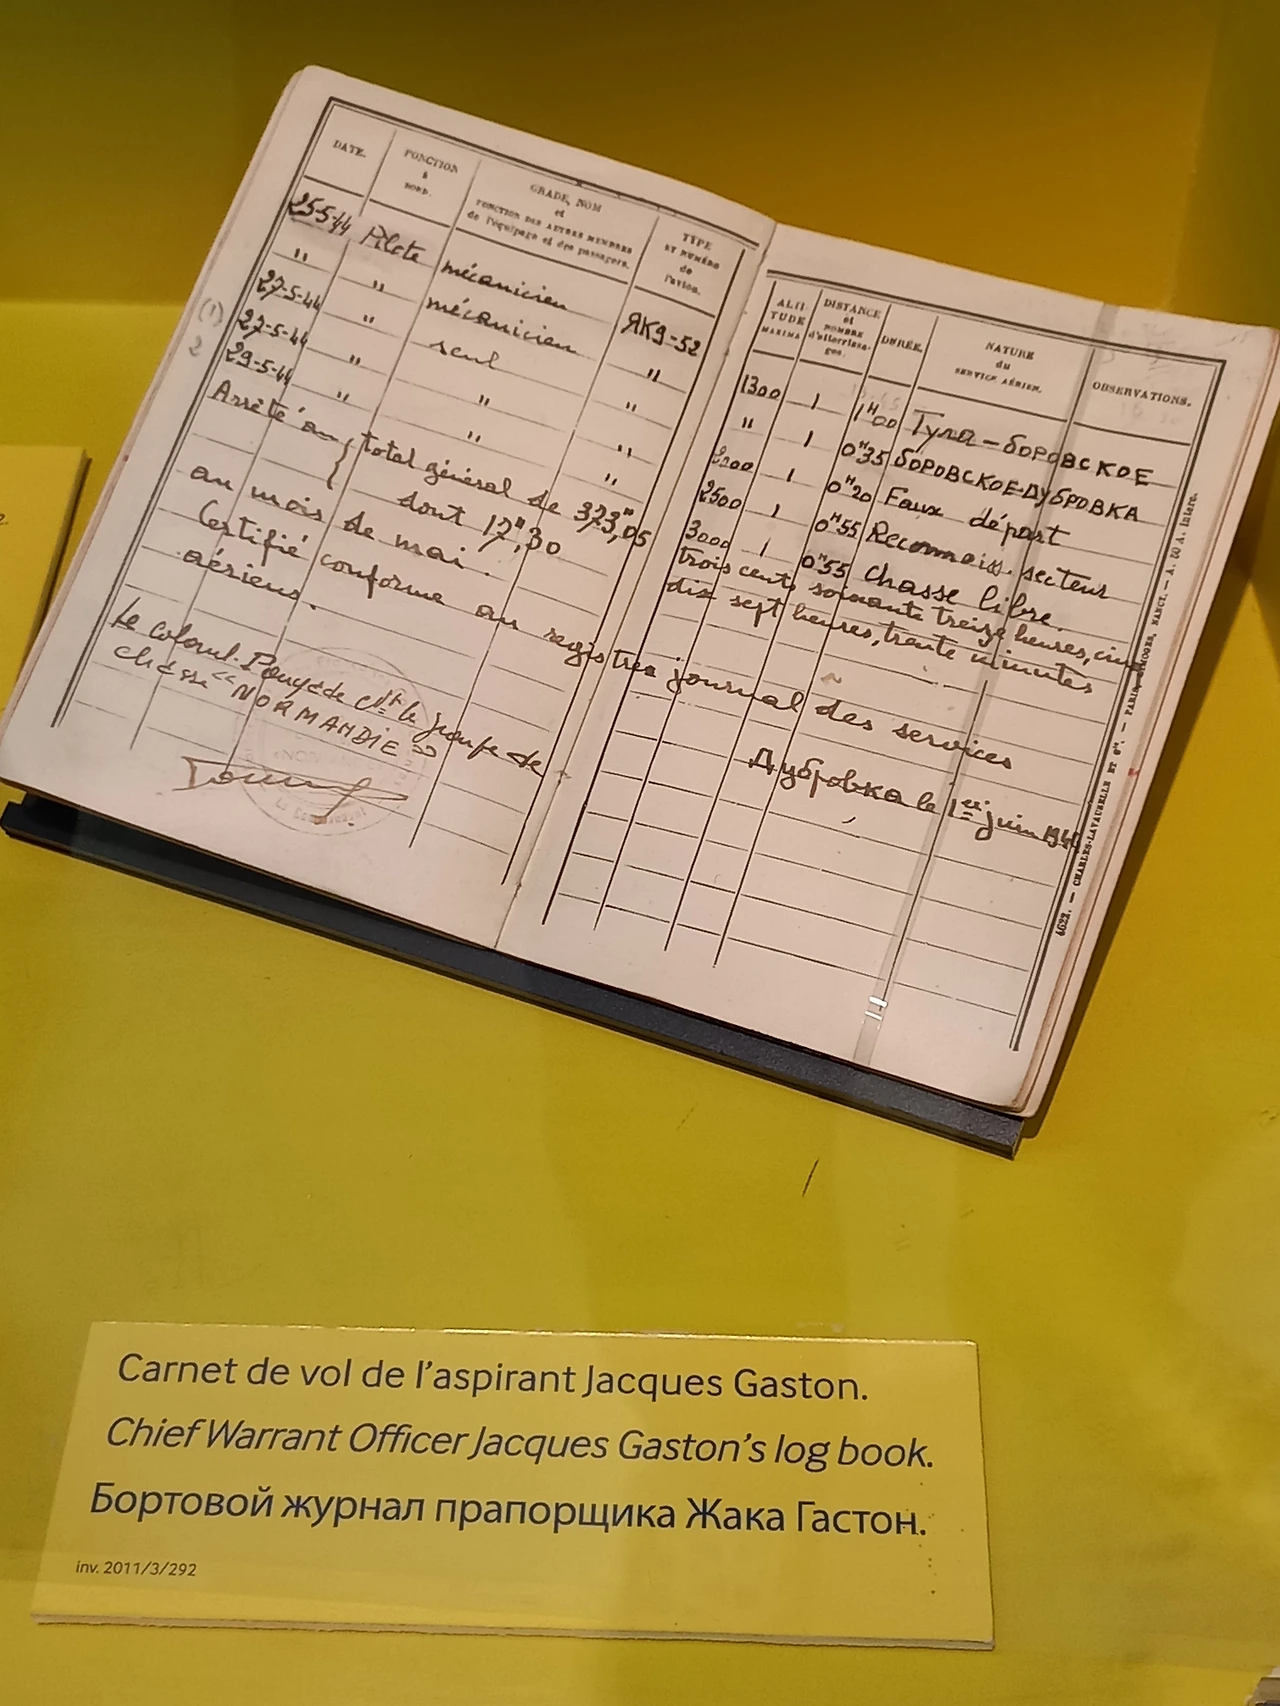 DATE.
FONCTION
à
BORD.
GRADE, NOM
et
FONCTION DES AUTRES MEMBRES
de l'équipage et des passagers.
TYPE
ET NUMÉRO
de
l'avion.
ALTI-
TUDE
MAXIMA
DISTANCE
et
NOMBRE
d'atterrissa-
ges.
DURÉE.
NATURE
du
SERVICE AÉRIEN.
OBSERVATIONS.
25-5-44 Pilote mécanicien ЯК9-52 1300 1 1H00 Тула - БОРОВСКОЕ
" " mécanicien " " 1 0H35 БОРОВСКОЕ-ДУБРОВКА
(1) 27-5-44 " seul " 1 0H20 Faux départ
2 27-5-44 " " " 2500 1 0H55 Reconnaiss. secteur
29-5-44 " " " 3000 1 0H55 Chasse libre
Arrêté au { total général de 373H,05 trois cents soixante treize heures, cinq
{ dont 17H,30 dix sept heures, trente minutes
au mois de mai.
Certifié conforme au registre journal des services
aériens.
Дубровка le 1er juin 1944
Le colonel Pouyade Cdt le groupe de
chasse "NORMANDIE"
4622. — CHARLES-LAVAUZELLE ET Cie. — PARIS, LIMOGES, NANCY. —
Carnet de vol de l'aspirant Jacques Gaston.
Chief Warrant Officer Jacques Gaston's log book.
Бортовой журнал прапорщика Жака Гастон.
inv. 2011/3/292